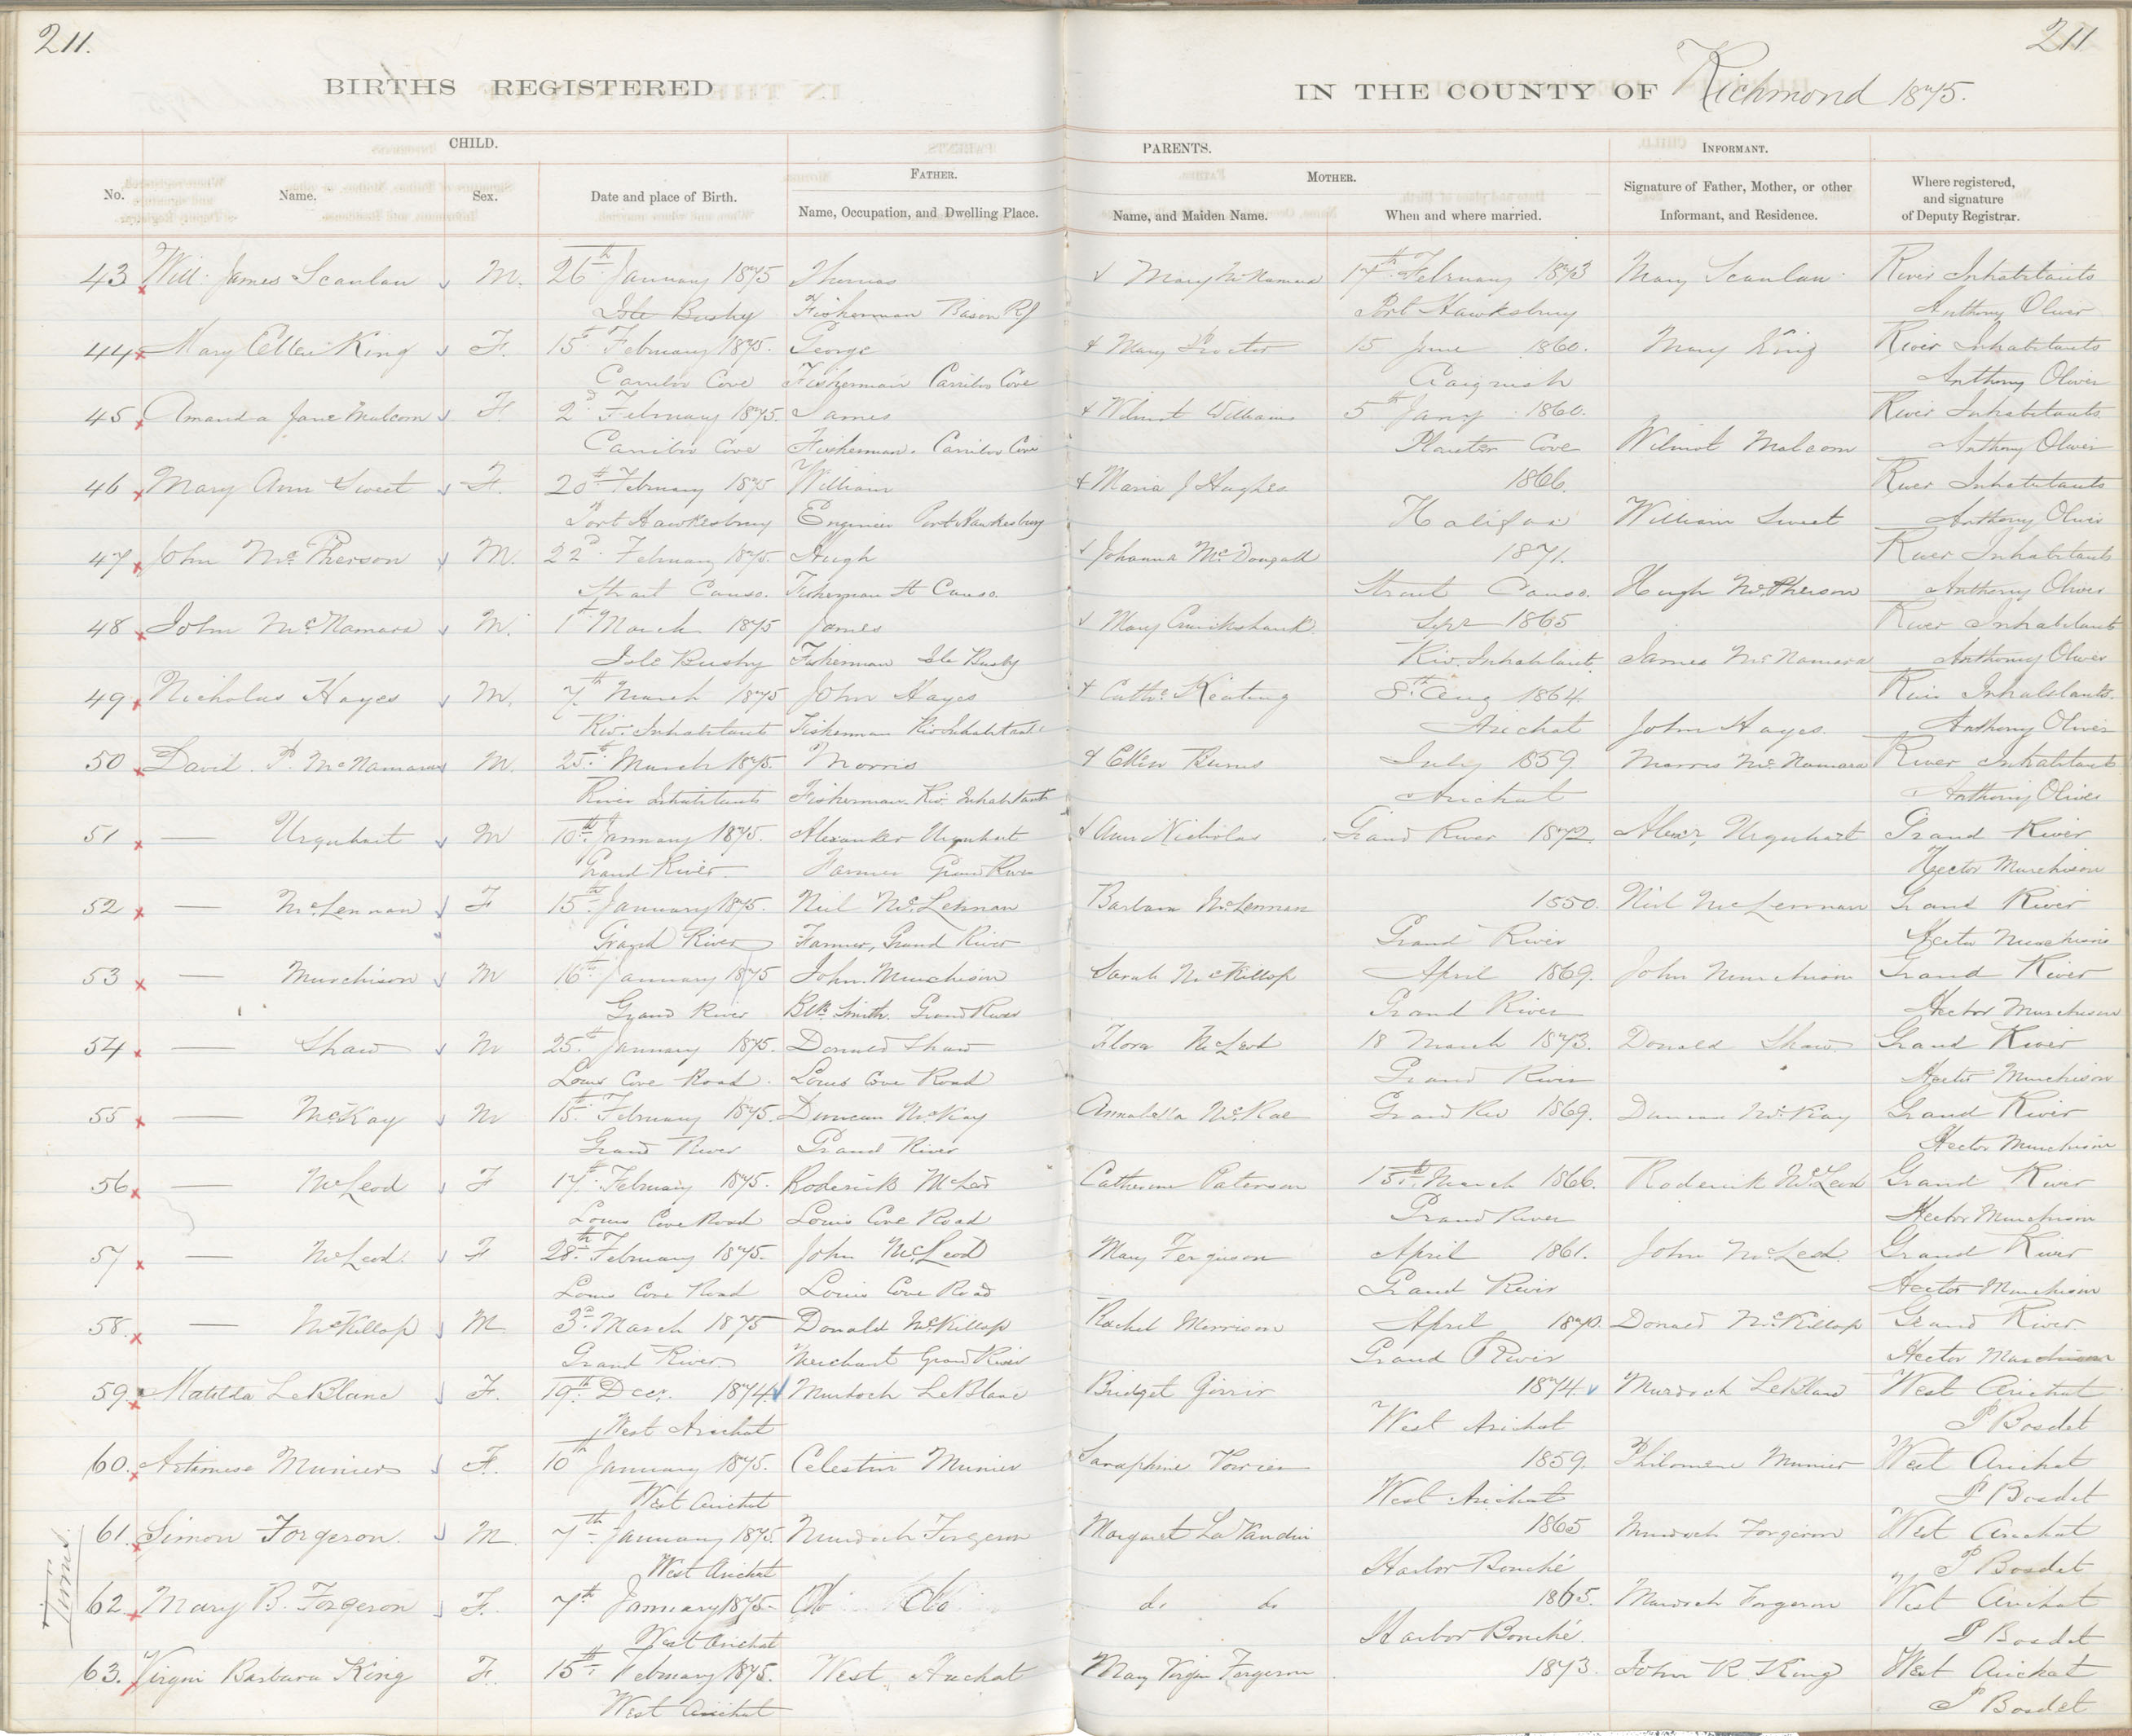 211.
211
BIRTHS REGISTERED
IN THE COUNTY OF Richmond 1875.
CHILD.
PARENTS.
INFORMANT.
No.
Name.
Sex.
Date and place of Birth.
FATHER.
Name, Occupation, and Dwelling Place.
MOTHER.
Name, and Maiden Name.
When and where married.
Signature of Father, Mother, or other
Informant, and Residence.
Where registered,
and signature
of Deputy Registrar.
43 Will. James Scanlan M. 26th January 1875 Thomas Mary McNamara 17th February 1873 Mary Scanlan River Inhabitants
Isle Busby Fisherman Bason Port Hawksbury Anthony Oliver
44 Mary Ellen King F. 15th February 1875. George Mary Proctor 15 June 1860. Mary King River Inhabitants
Carribo Cove Fisherman Carribo Cove Craignish Anthony Oliver
45 Amanda Jane Malcom F. 2d February 1875. James Wilmot Williams 5th Jany 1860. River Inhabitants
Carribo Cove Fisherman. Carribo Cove Plaster Cove Wilmot Malcom Anthony Oliver
46 Mary Ann Sweet F. 20th February 1875 William Maria J Hughes 1866. River Inhabitants
Port Hawkesbury Engineer Port Hawkesbury Halifax William Sweet Anthony Oliver
47 John McPherson M. 22d February 1875. Hugh Johanna McDougall 1871. River Inhabitants
Strait Canso. Fisherman St Canso. Strait Canso. Hugh McPherson Anthony Oliver
48 John McNamara M. 1st March 1875 James Mary Cruickshank 1865 River Inhabitants
Isle Busby Fisherman Isle Busby Riv. Inhabitants James McNamara Anthony Oliver
49 Nicholas Hayes M. 7th March 1875 John Hayes Cathe Keating 8th Aug 1864. River Inhabitants.
Riv. Inhabitants Fisherman Riv Inhabitants Arichat John Hayes. Anthony Oliver
50 David P. McNamara M. 25th March 1875. Morris Ellen Burns July 1859 Morris McNamara River Inhabitants
River Inhabitants Fisherman. Riv. Inhabitants Arichat Anthony Oliver
51 — Urquhart M 10th January 1875. Alexander Urquhart Ann Nicholas Grand River 1872. Alexr Urquhart Grand River
Grand River. Farmer Grand River Hector Murchison
52 — McLennan F 15th January 1875. Neil McLennan Barbara McLennan 1850. Neil McLennan Grand River
Grand River Farmer, Grand River Grand River Hector Murchison
53 — Murchison M 16th January 1875 John Murchison Sarah McKillop April 1869. John Murchison Grand River
Grand River Blk Smith. Grand River Grand River Hector Murchison
54 — Shaw M 25th January 1875. Donald Shaw Flora McLeod 18 March 1873. Donald Shaw Grand River
Louis Cove Road. Louis Cove Road Grand River Hector Murchison
55 — McKay M 15th February 1875. Duncan McKay Annabella McRae Grand Riv 1869. Duncan McKay Grand River
Grand River Grand River Hector Murchison
56 — McLeod F 17th February 1875. Roderick McLeod Catherine Paterson 15th March 1866. Roderick McLeod Grand River
Louis Cove Road Louis Cove Road Grand River Hector Murchison
57 — McLeod. F 28th February 1875. John McLeod Mary Ferguson April 1861. John McLeod. Grand River
Louis Cove Road Louis Cove Road Grand River Hector Murchison
58. — McKillop M 3d March 1875 Donald McKillop Rachel Morrison April 1870. Donald McKillop Grand River
Grand River Merchant Grand River Grand River Hector Murchison
59. Matilda LeBlanc F. 19th Decr. 1874. Murdoch LeBlanc Bridget 1874. Murdoch LeBlanc West Arichat
West Arichat West Arichat P Bosdet
60. Artimese Munier F. 10th January 1875. Celestin Munier Saraphine 1859. Philomene Munier West Arichat
West Arichat West Arichat P Bosdet
61. Simon Forgeron. M. 7th January 1875 Murdoch Forgeron Margaret 1865 Murdoch Forgeron West Arichat
West Arichat Harbor Bouché P Bosdet
Twins.
62. Mary B. Forgeron F. 7th January 1875. Do Do do do 1865. Murdoch Forgeron West Arichat
West Arichat Harbor Bouché. P Bosdet
63. Virgin Barbara King F. 15th February 1875. West Arichat Mary Virgin Forgeron 1873. John R. King West Arichat
West Arichat P Bosdet